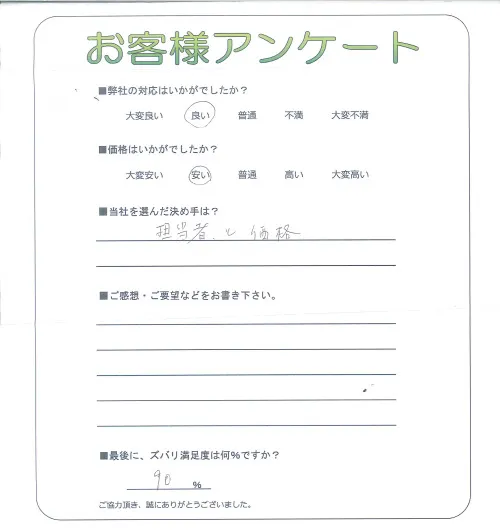 お客様アンケート
■弊社の対応はいかがでしたか?
大変良い 良い 普通 不満 大変不満
■価格はいかがでしたか?
大変安い 安い 普通 高い 大変高い
■当社を選んだ決め手は?
担当者、と 価格
■ご感想・ご要望などをお書き下さい。
■最後に、ズバリ満足度は何%ですか?
90 %
ご協力頂き、誠にありがとうございました。